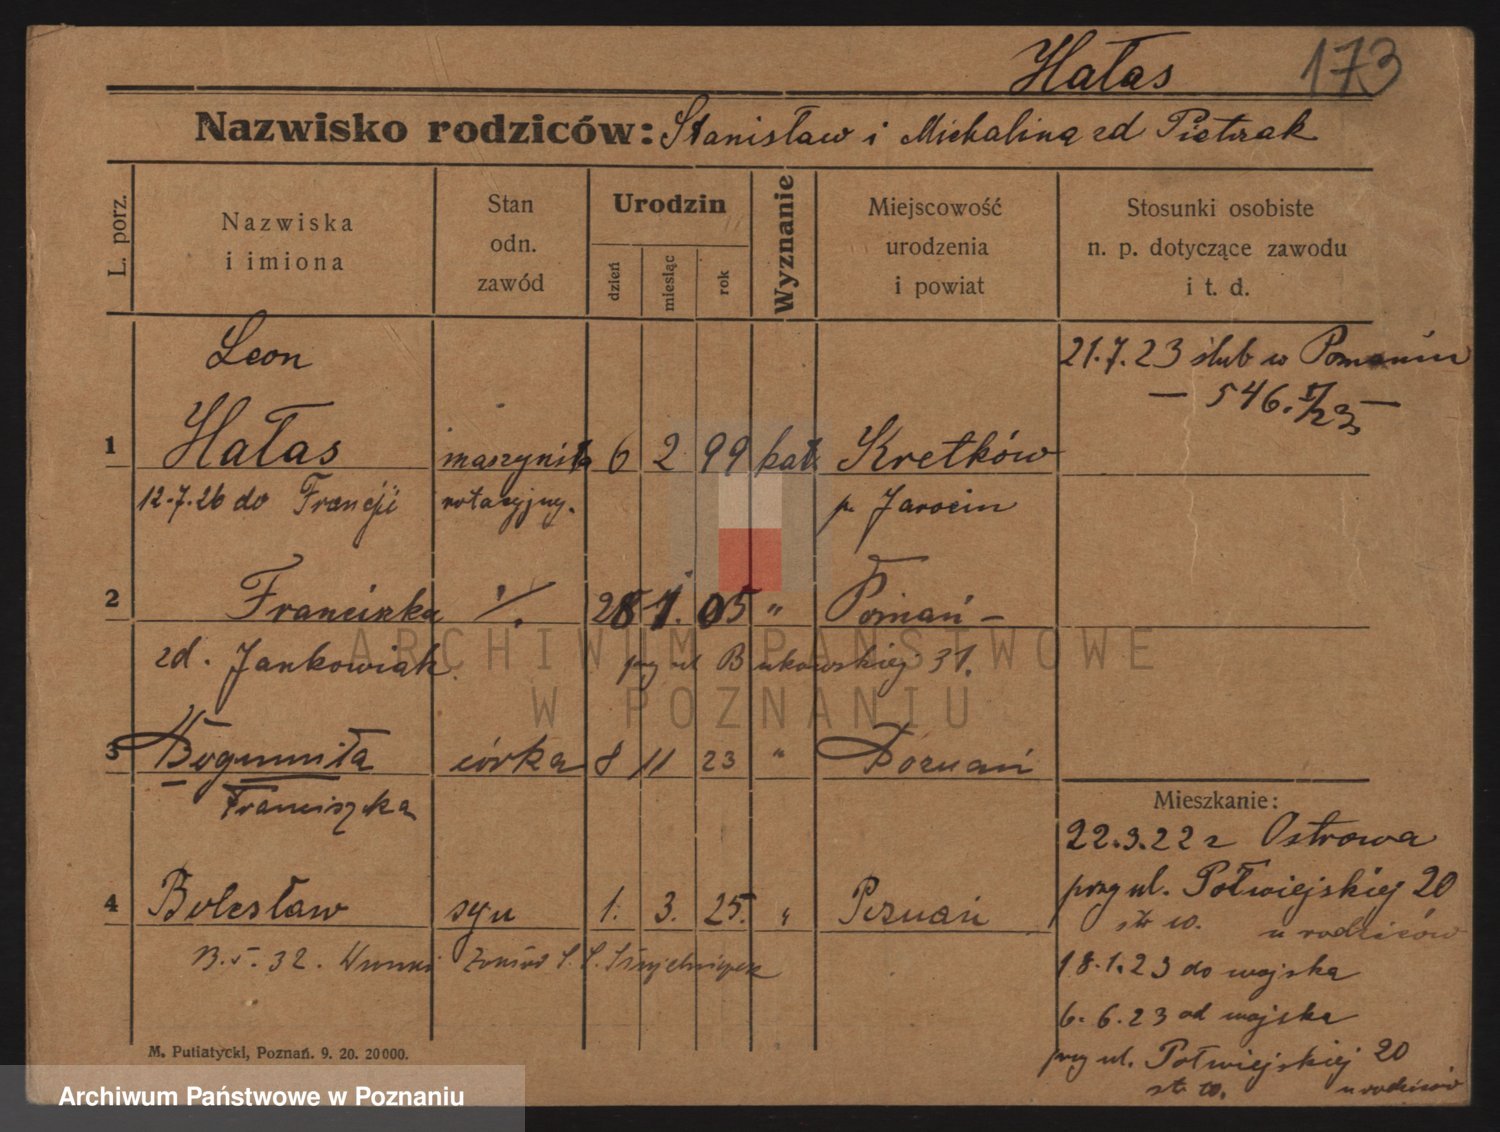 Hałas 173
Nazwisko rodziców: Stanisław i Michalina zd Pietrzak
L. porz.
Nazwiska
i imiona
Stan
odn.
zawód
Urodzin
dzień
miesiąc
rok
Wyznanie
Miejscowość
urodzenia
i powiat
Stosunki osobiste
n. p. dotyczące zawodu
i t. d.
Leon
21.7.23 ślub w Poznaniu
— 546. /23 —
1 Hałas maszynista 6 2 99 kat. Kretków
12.7.26 do Francji rotacyjny. p. Jarocin
2 Franciszka ż. 28 1. 05 " Poznań —
zd. Jankowiak przy ul Bukowskiej 31.
3 Bogumiła córka 8 11 23 " Poznań
Franciszka
Mieszkanie:
22.3.22 z Ostrowa
przy ul. Półwiejskiej 20
4 Bolesław syn 1. 3. 25. " Poznań
u rodziców
18.1.23 do wojska
6.6.23 od wojska
przy ul. Półwiejskiej 20
u rodziców
M. Putiatycki, Poznań. 9. 20. 20000.
ARCHIWUM PAŃSTWOWE
W POZNANIU
Archiwum Państwowe w Poznaniu